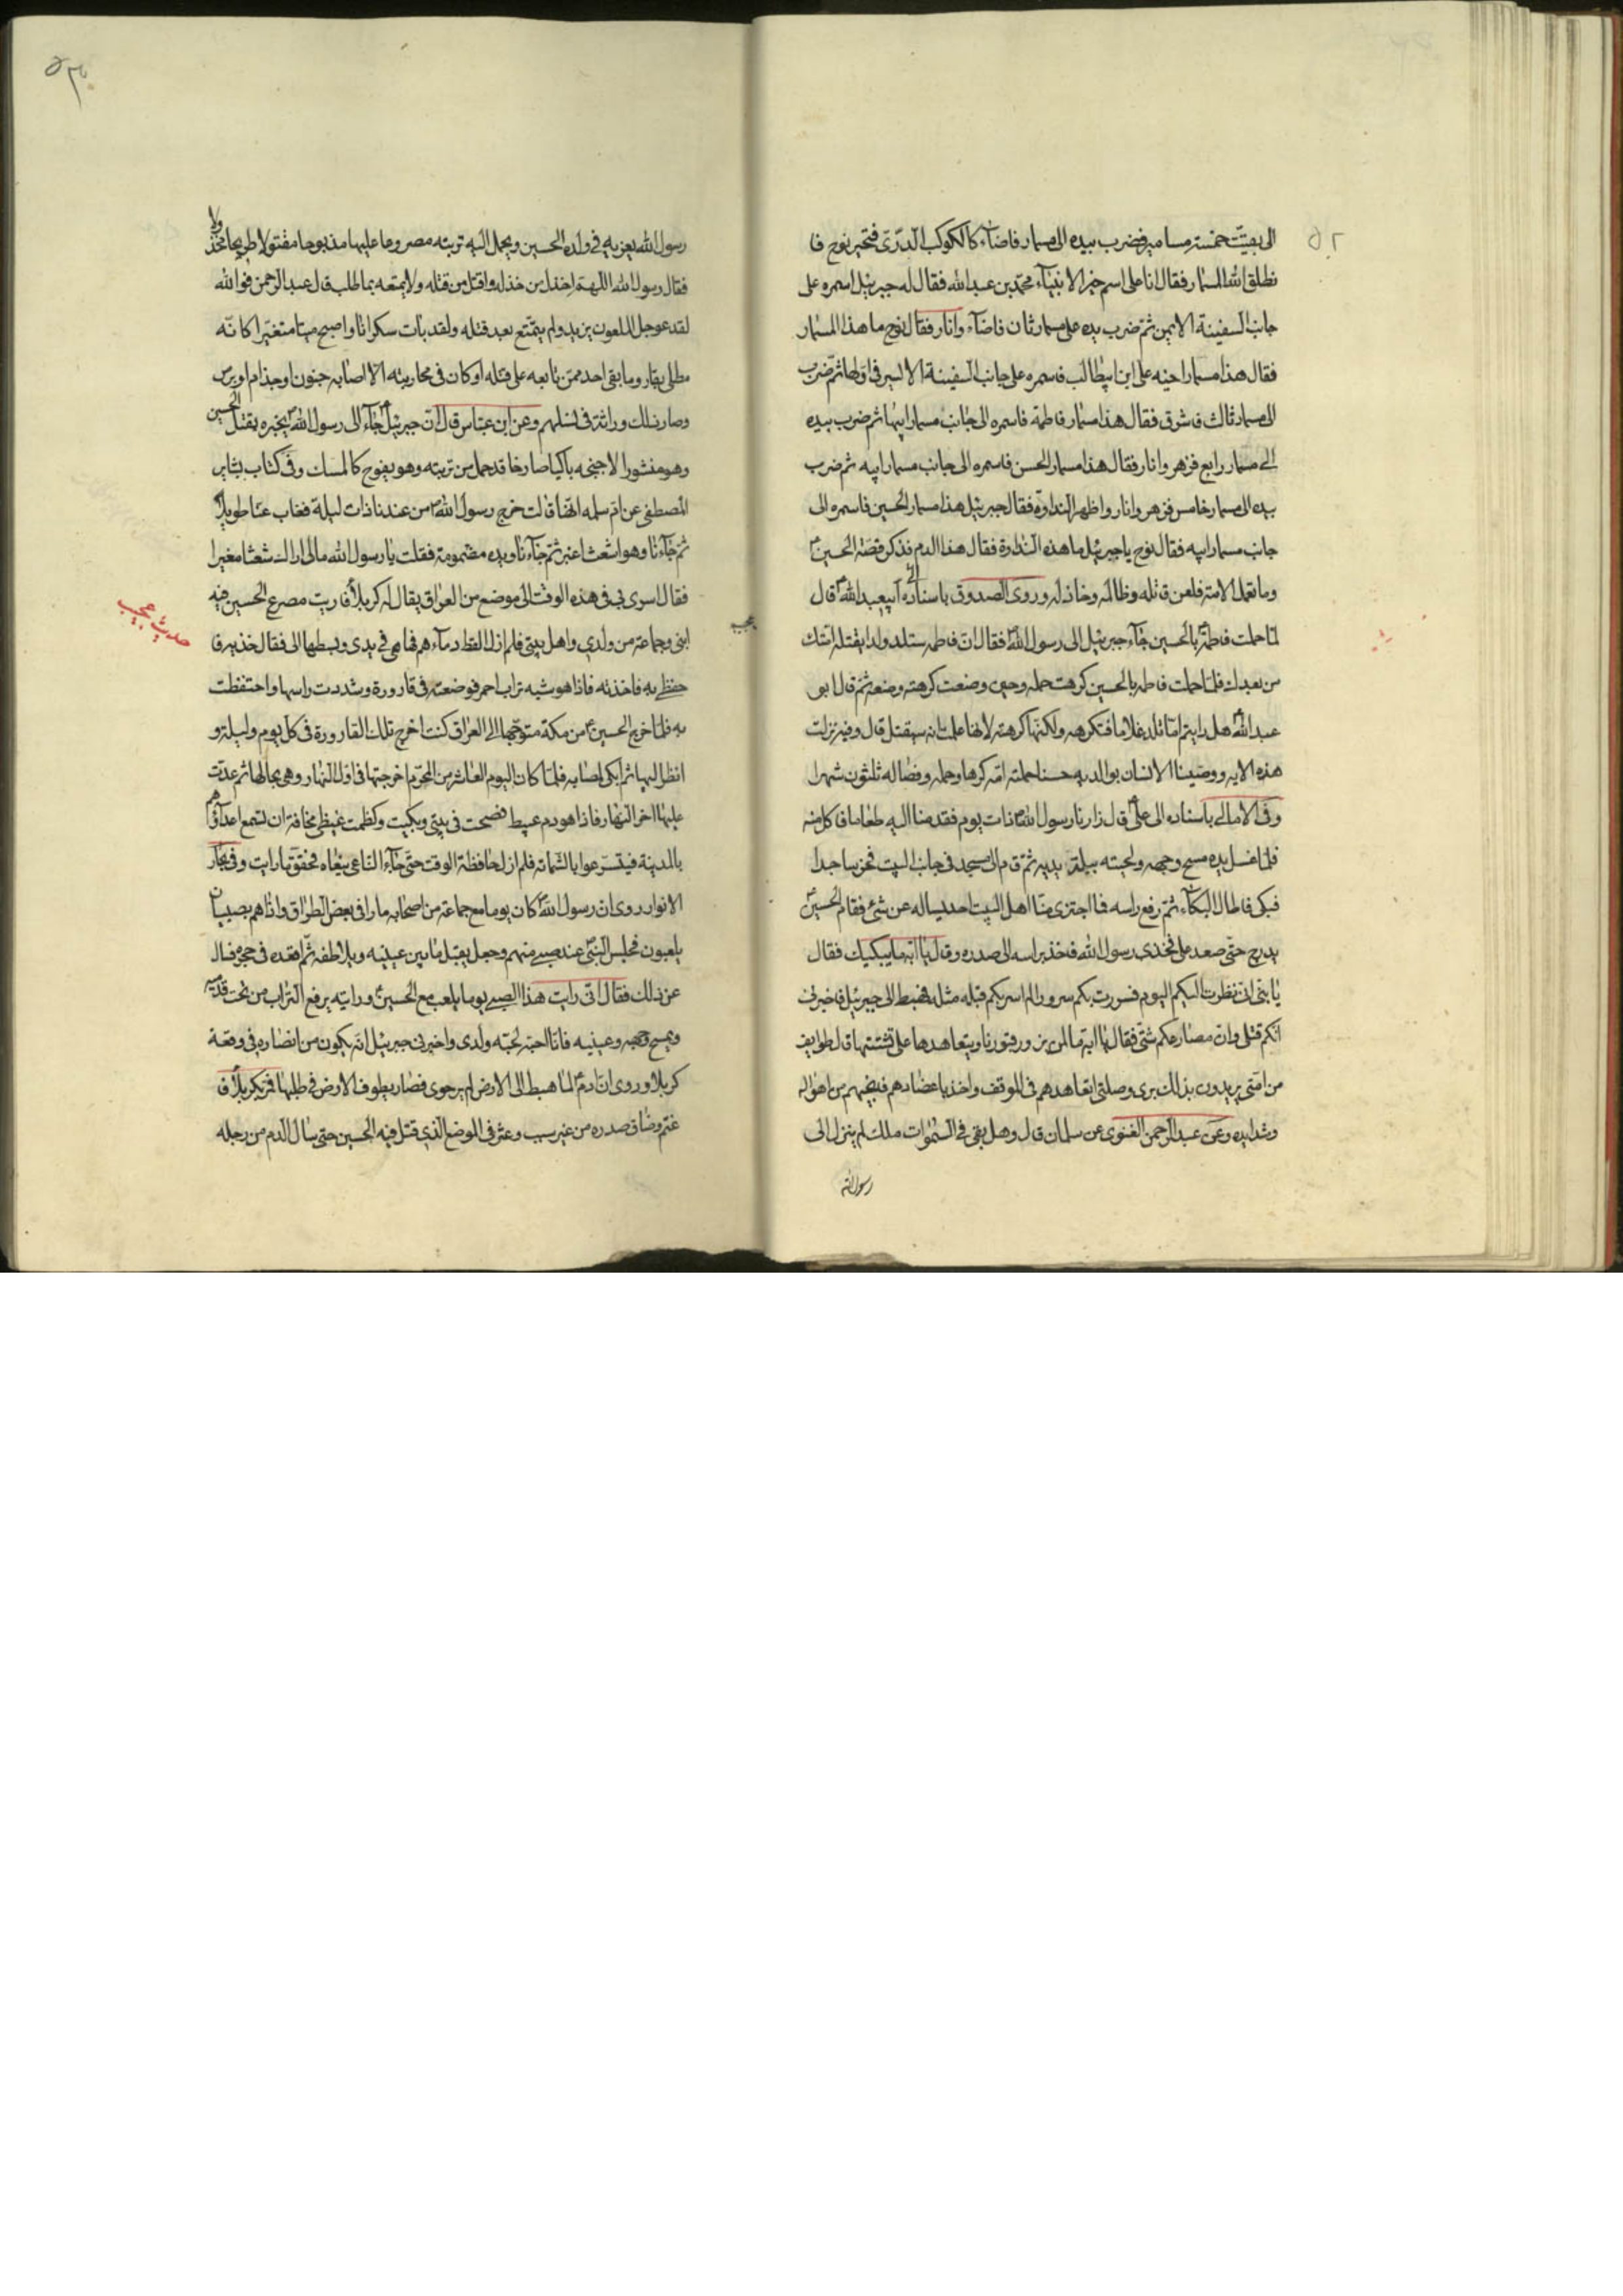 ٥٢
الى بقيت خمسة مسامير فضرب بيده الى مسمار فاضاء كالكوكب الدرّى فتحير نوح فا
نطلق الله المسمار فقال انا على اسم خير الانبياء محمّد بن عبد الله فقال له جبرئيل اسمره على
جانب السفينة الايمن ثم ضرب بيده على مسمار ثان فاضاء وانار فقال نوح ما هذا المسمار
فقال هذا مسمار اخيه على ابن ابيطالب فاسمره على جانب السفينة الايسر فى اولها ثم ضرب
الى مسمار ثالث فاشرق فقال هذا مسمار فاطمة فاسمره الى جانب مسمار ابيها ثم ضرب بيده
الى مسمار رابع فزهر وانار فقال هذا مسمار الحسن فاسمره الى جانب مسمار ابيه ثم ضرب
بيده الى مسمار خامس فزهر وانار واظهر النداوة فقال جبرئيل هذا مسمار الحسين فاسمره الى
جانب مسمار ابيه فقال نوح يا جبرئيل ما هذه النداوة فقال هذا الدم فذكر قصة الحسين
وما تعمل الامة فلعن قاتله وظالمه وخاذله وروى الصدوق باسناده الى ابيعبد الله قال
لما حملت فاطمة بالحسين جاء جبرئيل الى رسول الله فقال ان فاطمه ستلد ولدا يقتله امتك
من بعدك فلما حملت فاطمه بالحسين كرهت حمله وحين وضعت كرهته وضعه ثم قال ابى
عبد الله هل رايتم اما تلد غلاما فتكرهه ولكنها كرهته لانها علمت انه سيقتل قال وفيه نزلت
هذه الايه ووصينا الانسان بوالديه حسنا حملته امه كرها وحمله وفصاله ثلثون شهرا
وفى الامالى باسناده الى على قال زارنا رسول الله ذات يوم فقدمنا اليه طعاما فاكل منه
فلما غسل يده مسح وجهه ولحيته ببلة يديه ثم قام الى مسجد فى جانب البيت فخر ساجدا
فبكى فاطال البكاء ثم رفع راسه فما اجترى منا اهل البيت احد يساله عن شئ فقام الحسين
يدرج حتى صعد على فخذى رسول الله فاخذ براسه الى صدره وقال يا ابه ما يبكيك فقال
يا بنى انى نظرت اليكم اليوم فسررت بكم سرورا لم اسر بكم قبله مثله فهبط الى جبرئيل فاخبرنى
انكم قتلى وان مصارعكم شتى فقال يا ابه فمن يزور قبورنا ويتعاهدها على تشتتها قال طوايف
من امتى يريدون بذلك برى وصلتى اتعاهدهم فى الموقف واخذ باعضادهم فانجيهم من اهواله
وشدايده وعن عبد الرحمن الغنوى عن سلمان قال وهل بقى فى السموات ملك لم ينزل الى
رسول الله
رسول الله يعزيه فى ولده الحسين ويحمل اليه تربته مصروعا عليها مذبوحا مقتولا طريحا مخذولا
فقال رسول الله اللهم اخذل من خذله واقتل من قتله ولا تمتعه بما طلب قال عبد الرحمن فوالله
لقد عوجل الملعون يزيد ولم يتمتع بعد قتله ولقد بات سكرانا واصبح ميتا متغيرا كانه
مطلى بقار وما بقى احد ممن تابعه على قتله او كان فى محاربته الا اصابه جنون او جذام او برص
وصار ذلك وراثة فى نسلهم وعن ابن عباس قال ان جبرئيل جاء الى رسول الله يخبره بقتل الحسين
وهو منشور الاجنحه باكيا صارخا قد حمل من تربته وهو يفوح كالمسك وفى كتاب بشاير
المصطفى عن ام سلمه انها قالت خرج رسول الله من عندنا ذات ليلة فغاب عنا طويلا
ثم جاءنا وهو اشعث اغبر ثم جاءنا ويده مضمومة فقلت يا رسول الله مالى اراك شعثا مغبرا
فقال اسرى بى فى هذه الوقت الى موضع من العراق يقال له كربلا فاريت مصرع الحسين فيه
ابنى وجماعة من ولدى واهل بيتى فلم ازل القط دماءهم فها هى فى يدى وبسطها الى فقال خذيه فا
حفظى به فاخذته فاذا هو شبه تراب احمر فوضعته فى قارورة وشددت راسها واحتفظت
به فلما خرج الحسين من مكة متوجها الى العراق كنت اخرج تلك القارورة فى كل يوم وليلة و
انظر اليها ثم ابكى لصابه فلما كان اليوم العاشر من المحرم اخرجتها فى اول النهار وهى بحالها ثم عدت
عليها اخر النهار فاذا هو دم عبيط فصحت فى بيتى وبكيت وكظمت غيظى مخافة ان تسمع اعداؤهم
بالمدينة فيتسرعوا بالشماته فلم ازل حافظة الوقت حتى جاء الناعى ينعاه فحقق ما رايت وفى بحار
الانوار روى ان رسول الله كان يوما مع جماعة من اصحابه مارا فى بعض الطراق واذا هم بصبيان
يلعبون فجلس النبى عند صبى منهم وجعل يقبل ما بين عينيه ويلاطفه ثم اقعده فى حجره فسال
عن ذلك فقال انى رايت هذا الصبى يوما يلعب مع الحسين ورايته يرفع التراب من تحت قدميه
ويمسح وجهه وعينيه فانا احبه لحبه ولدى واخبرنى جبرئيل انه يكون من انصاره فى وقعة
كربلا وروى ان ادم لما هبط الى الارض لم ير حوى فصار يطوف الارض فى طلبها فمر بكربلا فا
غتم وضاق صدره من غير سبب وعثر فى الموضع الذى قتل فيه الحسين حتى سال الدم من رجله
حديث عجيب